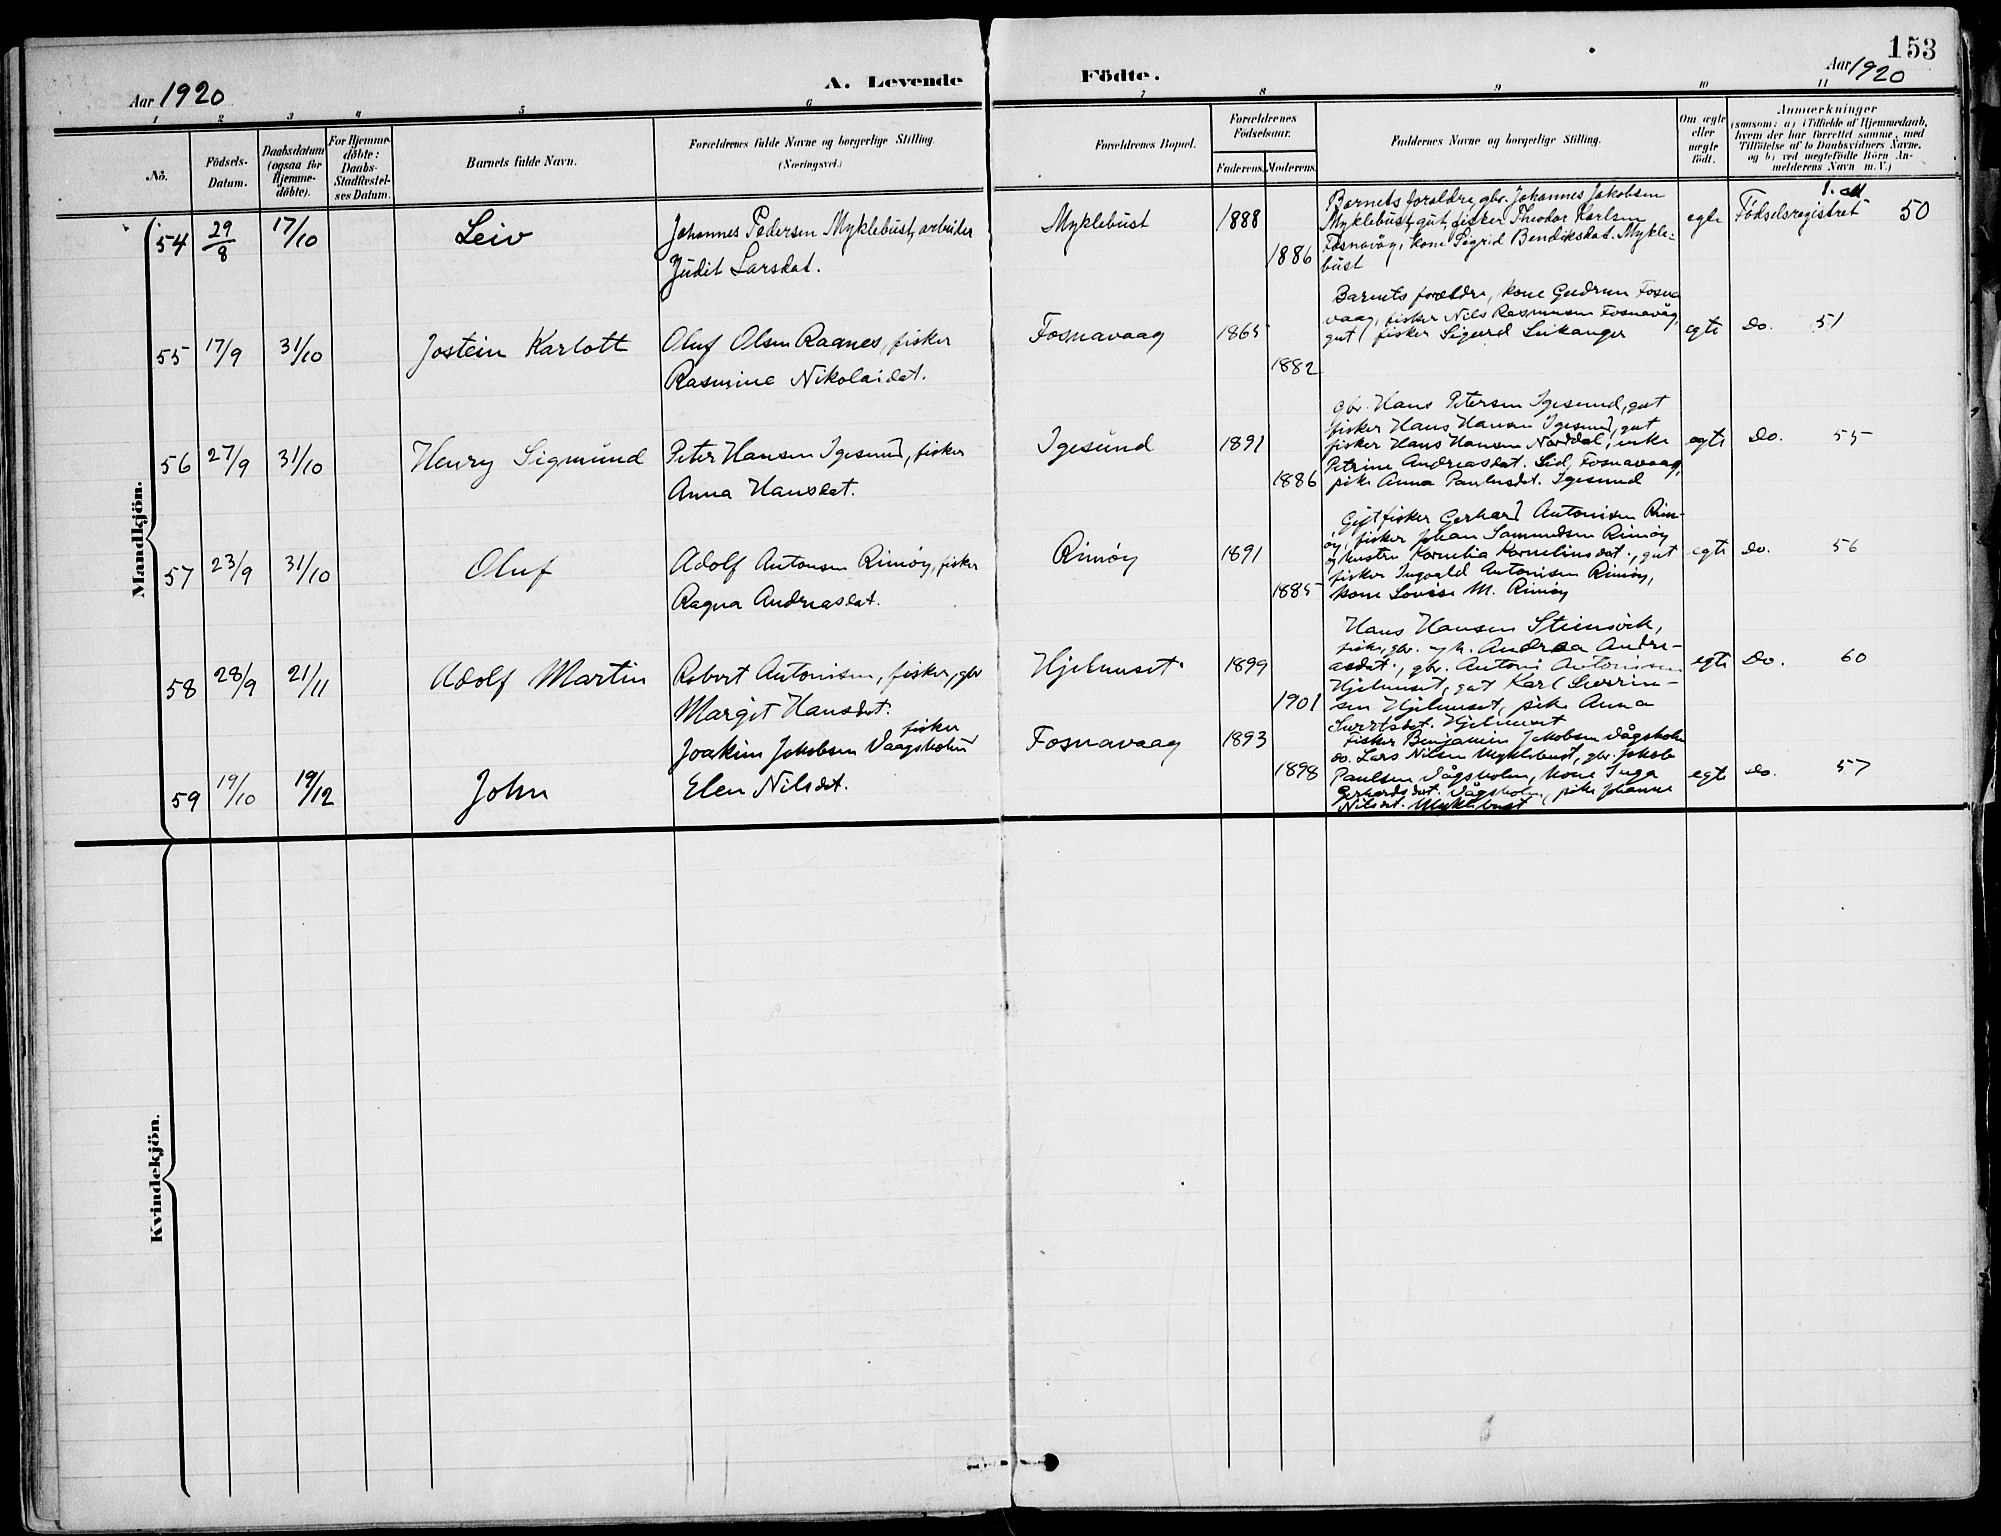 153
Aar 1920
A. Levende
Födte.
Aar 1920
1 2 3 4 5 6 7 8 9 10 11
No.
Födsels-
Datum.
Daabsdatum
(ogsaa for
Hjemme-
döbte).
For Hjemme-
döbte:
Daabs-
Stadfæstel-
ses Datum.
Barnets fulde Navn.
Forældrenes fulde Navne og borgerlige Stilling.
(Næringsvei.)
Forældrenes Bopæl.
Forældrenes
Födselsaar.
Faderens.
Moderens.
Faddernes Navne og borgerlige Stilling.
Om ægte
eller
uægte
födt.
Anmærkninger
(saasom: a) i Tilfælde af Hjemmedaab,
hvem der har forrettet samme, med
Tilföielse af to Daabsvidners Navne,
og b) ved uægtefödte Börn An-
melderens Navn m. V.)
Mandkjön.
54 29/8 17/10
Leiv
Johannes Pedersen Myklebust, arbeider
Judit Larsdat.
Myklebust
1888
1886
Barnets foreldre, gbr. Johannes Jakobsen
Myklebust, gut, fisker Theodor Karlsen
Fosnavåg, kone Sigrid Bendiksdat. Mykle-
bust
egte
Fødselsregistret 50
55 17/9 31/10
Jostein Karlott
Oluf Olsen Raanes, fisker
Rasmine Nikolaidat.
Fosnavaag
1865
1882
Barnets forældre, kone Gudrun Fosna
vaag, fisker Nils Rasmussen Fosnavåg,
gut, fisker Sigurd Leikanger
egte
Do. 51
56 27/9 31/10
Henry Sigmund
Peter Hansen Igesund, fisker
Anna Hansdat.
Igesund
1891
1886
gbr. Hans Petersen Igesund, gut
fisker Hans Hansen Igesund, gut
fisker Hans Hansen Nørddal, enke
Petrine Andreasdat. Lid, Fosnavaag,
pike Anna Paulusdat. Igesund
egte
Do. 55
57 23/9 31/10
Oluf
Adolf Antonsen Rimøy, fisker
Ragna Andreasdat.
Rimøy
1891
1885
Gift fisker Gerhard Antonisen Rim-
øy, fisker Johan Samundsen Rimöy
og hustru Kornelia Korneliusdat., gut
fisker Ingvald Antonisen Rimöy,
kone Lovise M. Rimöy
egte
Do. 56
58 28/9 21/11
Adolf Martin
Robert Antonisen, fisker, gbr
Margit Hansdat.
Hjelmeset
1899
1901
Hans Hansen Steinsvik,
fisker, gbr. og h. Andrea Andre-
asdat., gbr. Antoni Antonisen
Hjelmeset, gut Karl Severin-
sen Hjelmeset, pike Anna
Sivertsdat. Hjelmeset
egte
Do. 60
59 19/10 19/12
John
fisker
Joakim Jakobsen Vaagsholm
Elen Nilsdat.
Fosnavaag
1893
1898
fisker Benjamin Jakobsen Vågsholm
do. Lars Nilsen Myklebust, gbr. Jakob
Paulsen Vågsholm, kone Inga
Gerhardsdat. Vågsholm, pike Johanne
Nilsdat. Myklebust
egte
Do. 57
Kvindekjön.